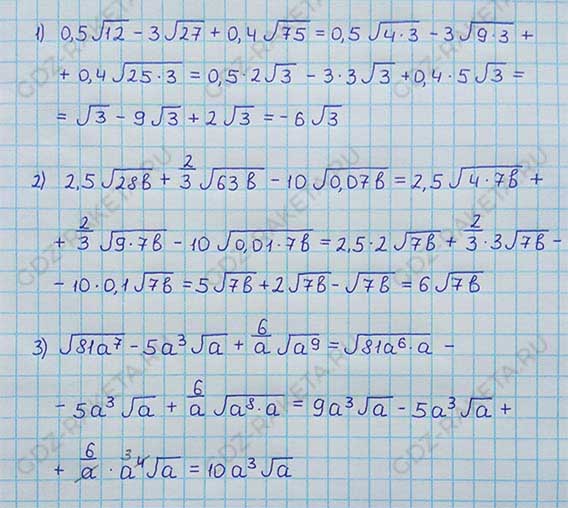 1) 0,5√12 - 3√27 + 0,4√75 = 0,5√4·3 - 3√9·3 +
+ 0,4√25·3 = 0,5·2√3 - 3·3√3 + 0,4·5√3 =
= √3 - 9√3 + 2√3 = -6√3
2) 2,5√28в + 2/3√63в - 10√0,07в = 2,5√4·7в +
+ 2/3√9·7в - 10√0,01·7в = 2,5·2√7в + 2/3·3√7в -
- 10·0,1√7в = 5√7в + 2√7в - √7в = 6√7в
3) √81a⁷ - 5a³√a + 6/a√a⁹ = √81a⁶·a -
- 5a³√a + 6/a√a⁸·a = 9a³√a - 5a³√a +
+ 6/a · a⁴ ³√a = 10a³√a
GDZ-RAKETA.RU